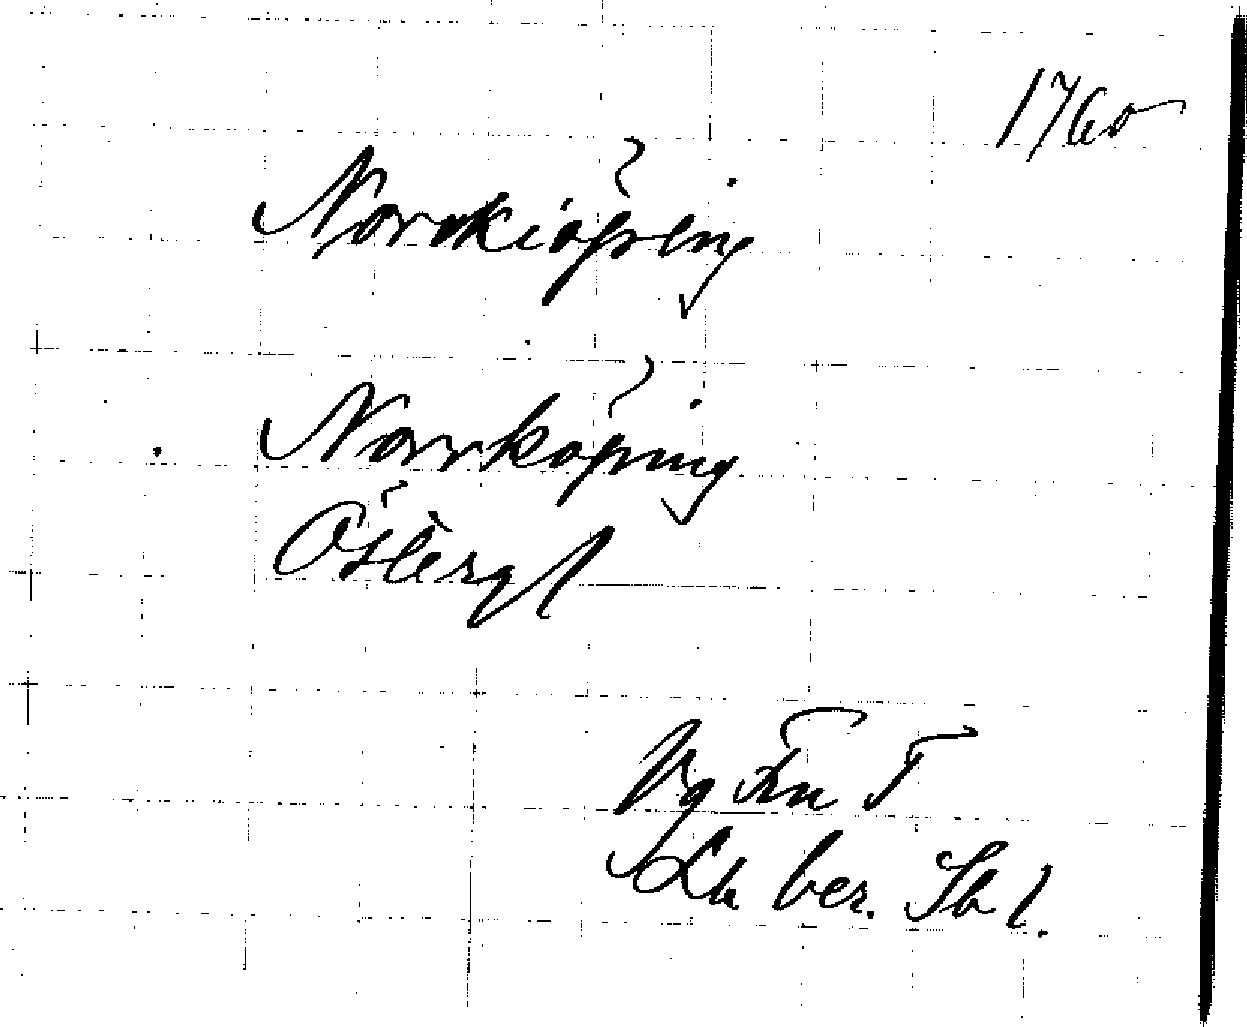 1760
Norrkiöping
Norrköping
Östergl
Vg Fru T
ber. Sb 1.